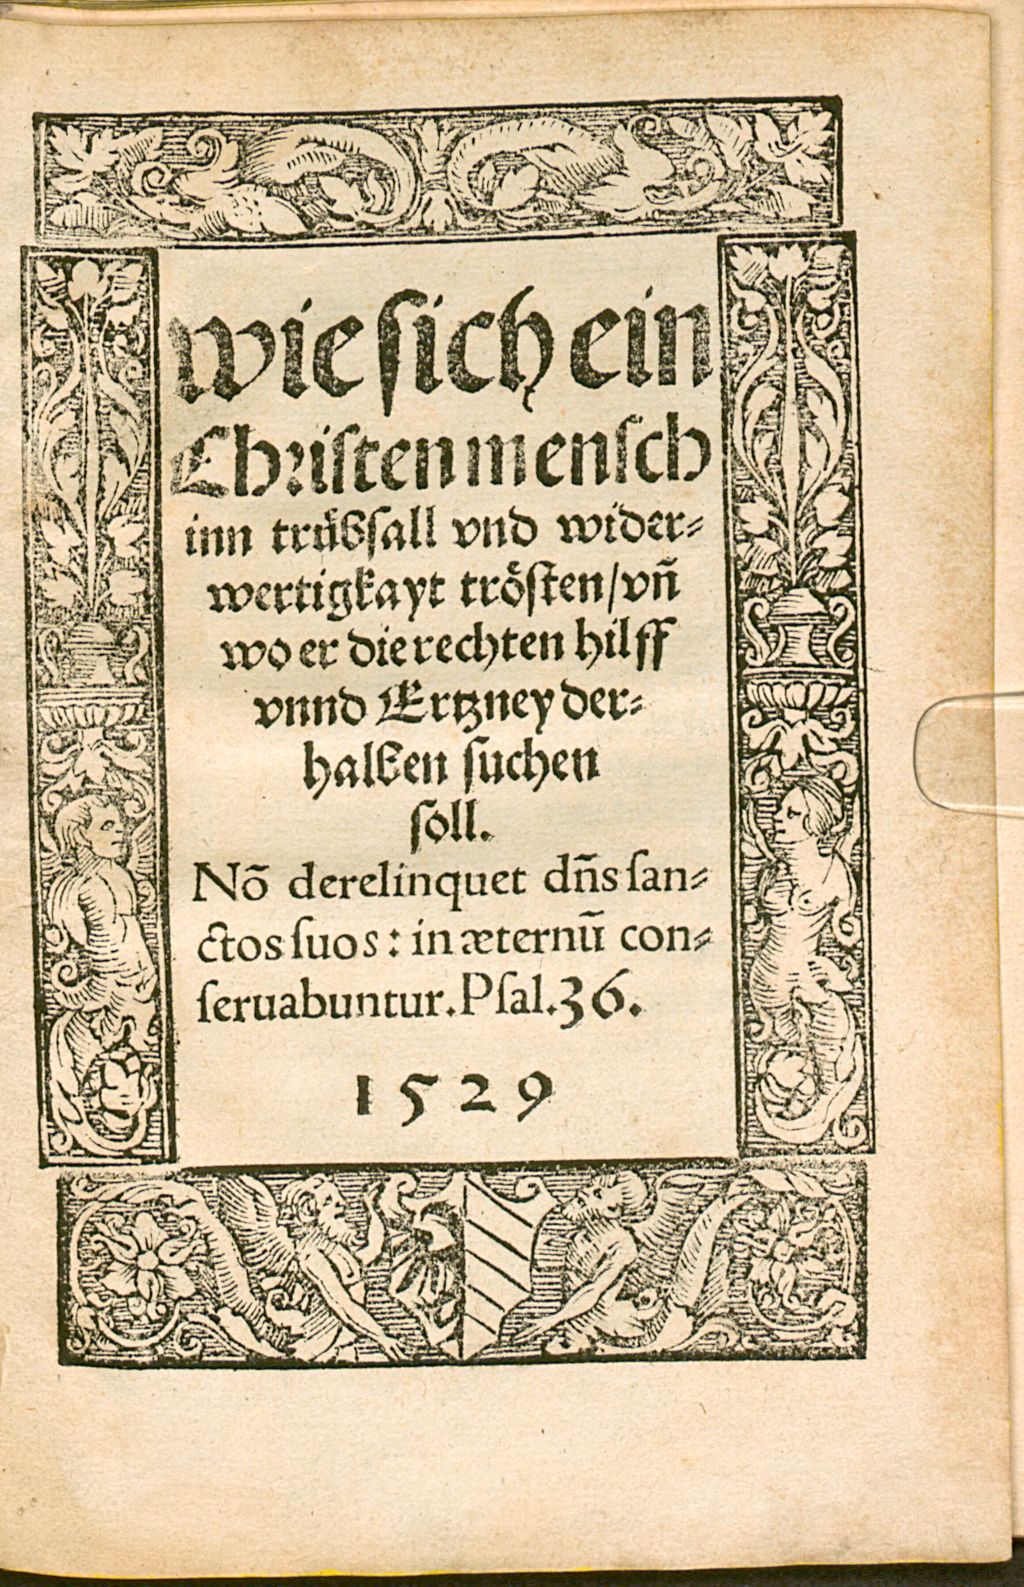 wie sich ein
Christenmensch
inn trübsall vnd wider⸗
wertigkayt trösten/vn̄
wo er die rechten hilff
vnnd Ertzney der⸗
halben suchen
soll.
Nō derelinquet dn̄s ſan⸗
ctos ſuos: in æternū con⸗
ſeruabuntur. Pſal. 36.
1529